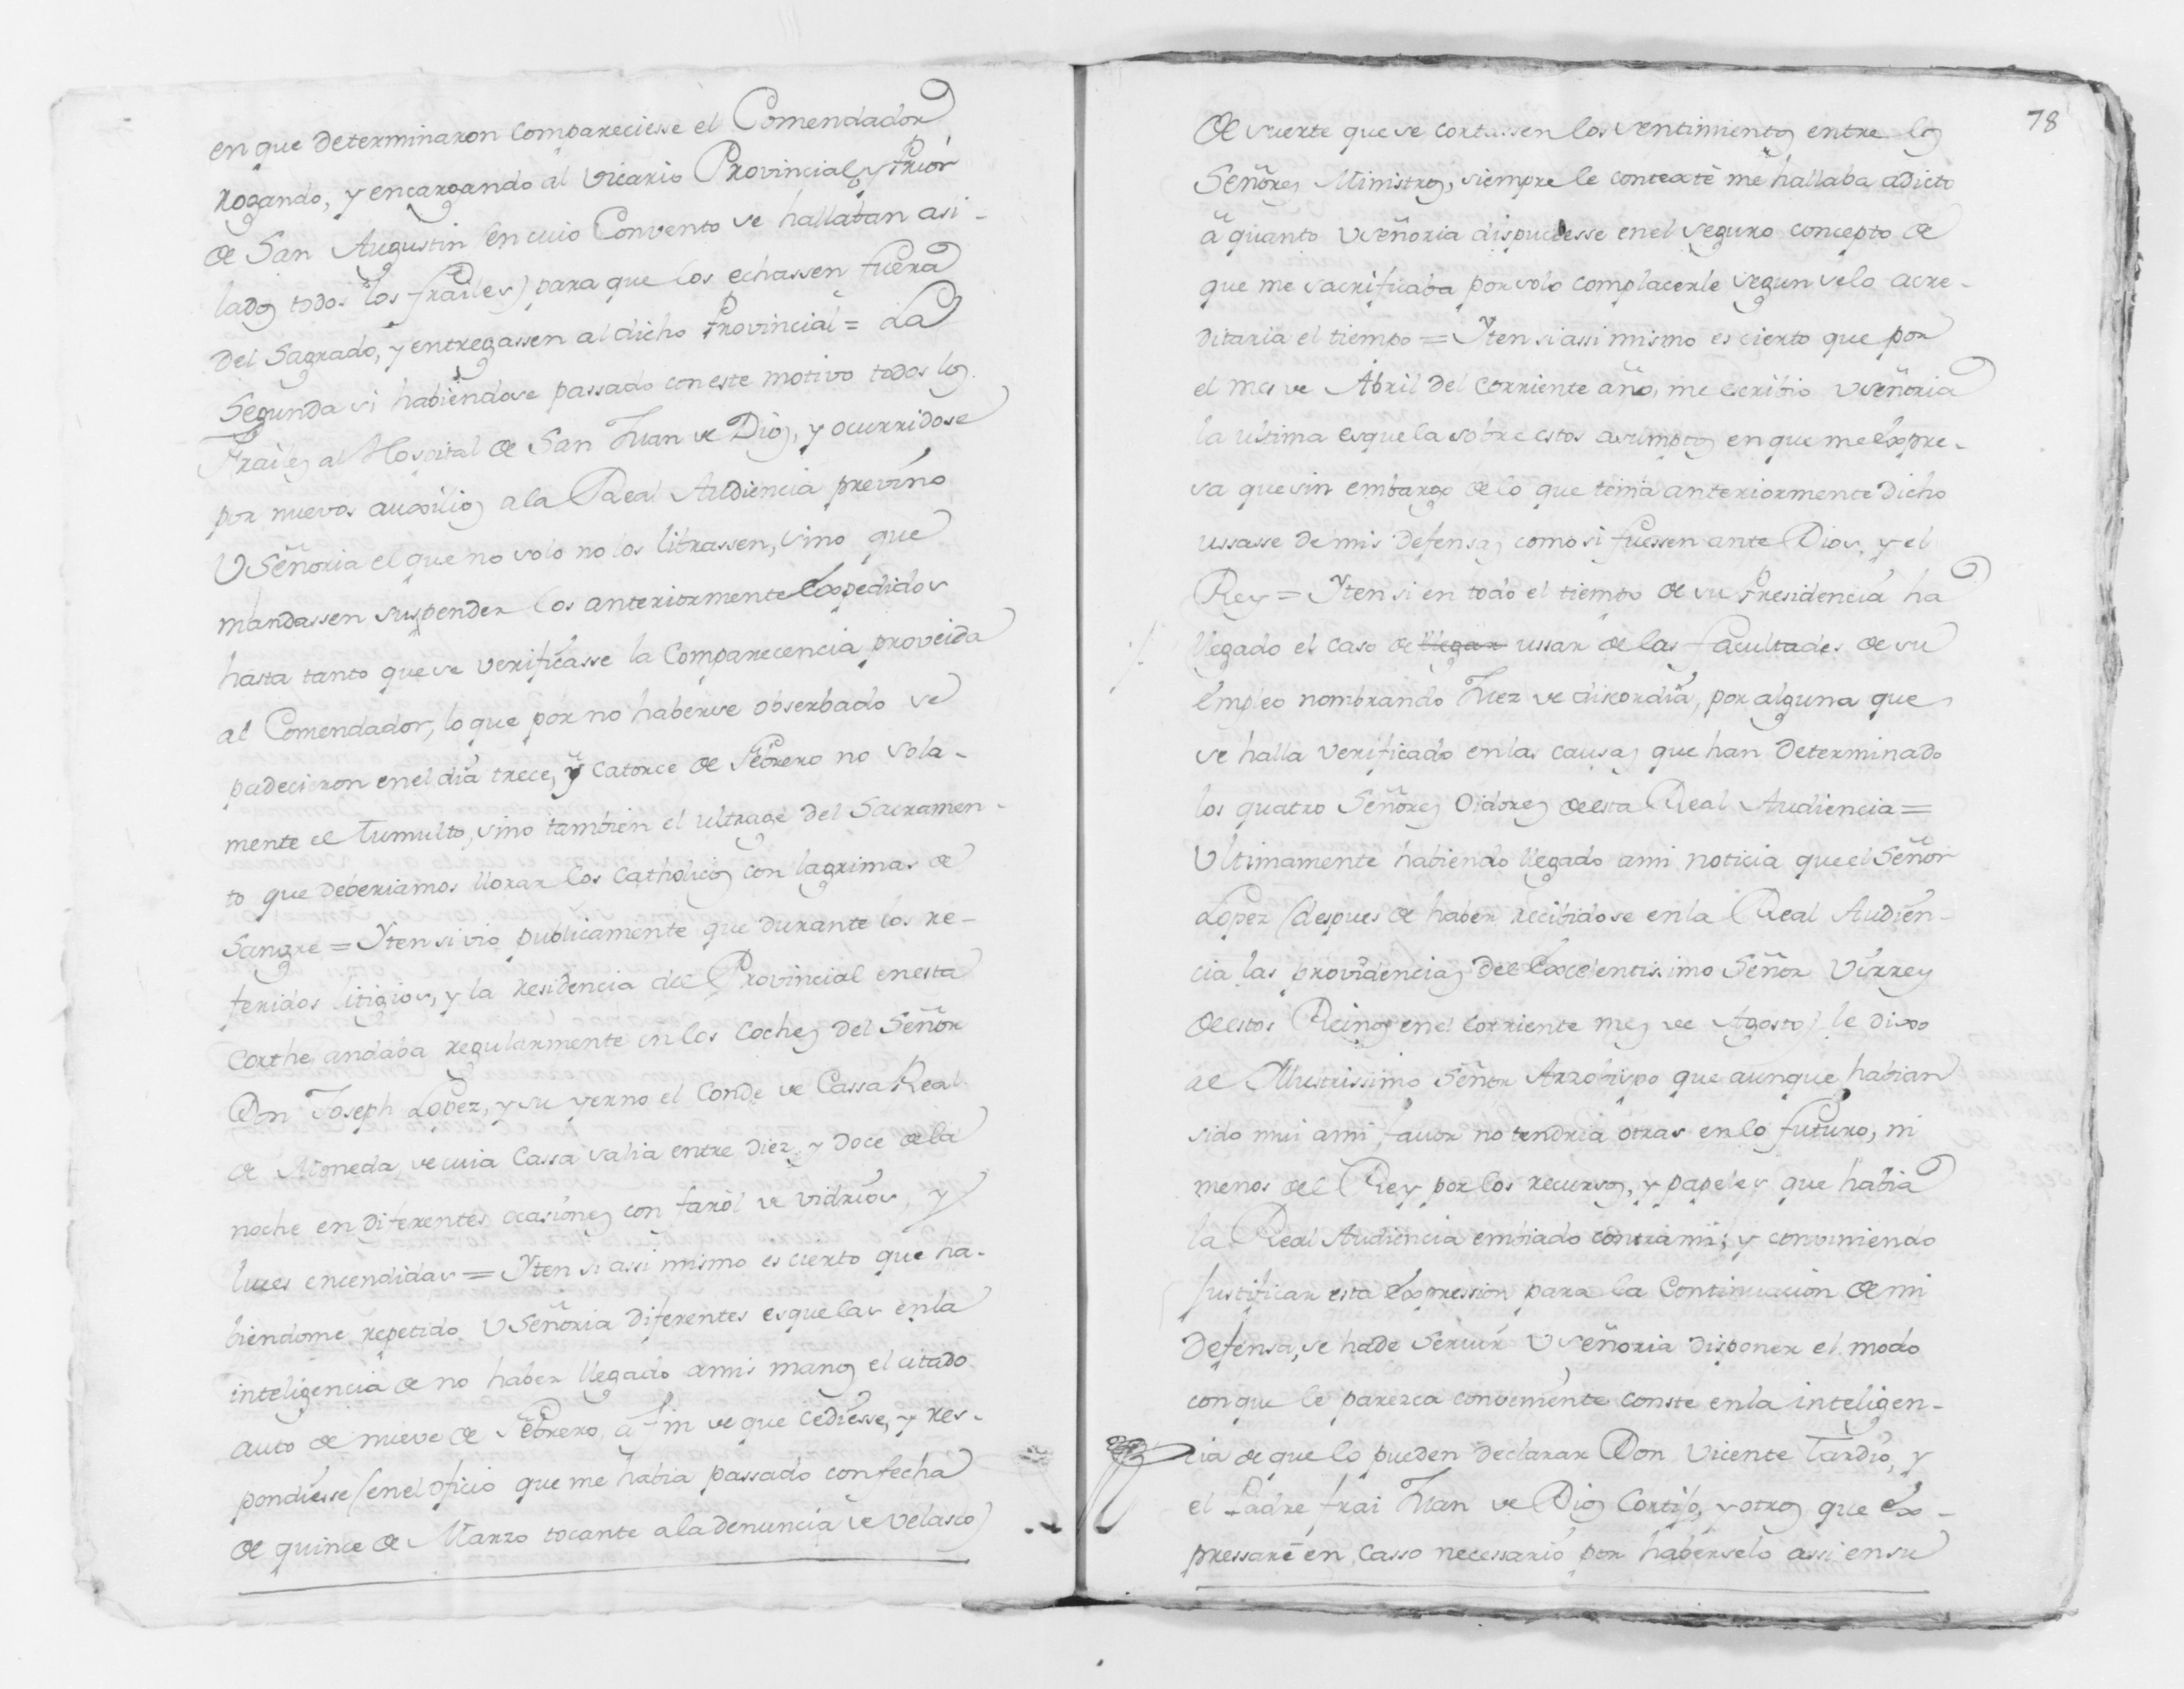 en que determinaron compareciesse el Comendador
rogando, y encargando al Vicario Provincial, y Prior
de San Augustin (en cuio Convento se hallaban asi-
lados todos los frailes) para que los echassen fuera
del Sagrado, y entregassen al dicho Provincial = La
Segunda si habiendose passado con este motivo todos los
Frailes al Hospital de San Juan de Dios, y ocurridose
por nuevos auxilios a la Real Audiencia previno
VSeñoria el que no solo no los librassen, sino que
mandassen suspender los anteriormente expedidos
hasta tanto que se verificasse la Comparecencia proveida
al Comendador, lo que por no haberse obserbado se
padecieron en el dia trece, y catorce de Febrero no sola-
mente el Tumulto, sino tambien el ultrage del Sacramen-
to que deberiamos llorar los Catholicos con lagrimas de
Sangre = Yten si vio publicamente que durante los re-
feridos litigios, y la residencia del Provincial en esta
Corthe, andaba regularmente en los Coches del Señor
Don Joseph Lopez, y su yerno el Conde de Cassa Real
de Moneda, de cuia Cassa salia entre diez, y doce de la
noche en diferentes ocasiones con farol de vidrios, y
luces encendidas = Yten si assi mismo es cierto que ha-
biendome repetido VSeñoria diferentes esquelas en la
inteligencia de no haber llegado a mis manos el citado
auto de nueve de Febrero, a fin de que cediesse, y res-
pondiesse (en el oficio que me habia passado con fecha
de quince de Marzo tocante a la denuncia de Velasco)
78
de suerte que se cortassen los sentimientos entre los
Señores Ministros, siempre le contexté me hallaba adicto
á quanto VSeñoria dispudesse en el seguro concepto de
que me sacrificaba por solo complacerle segun se lo acre-
ditaria el tiempo = Yten si assi mismo es cierto que por
el mes de Abril del corriente año, me escribio VSeñoria
la ultima esquela sobre estos asumptos en que me expre-
sa que sin embargo de lo que tenia anteriormente dicho
ussasse de mis defensas como si fuessen ante Dios, y el
Rey = Yten si en todo el tiempo de su Presidencia ha
llegado el caso de llegar ussar de las facultades de su
empleo nombrando Juez de discordia, por alguna que
se halla verificado en las causas que han determinado
los quatro Señores Oidores de esta Real Audiencia =
Ultimamente habiendo llegado a mi noticia que el Señor
Lopez (despues de haber recibidose en la Real Audien-
cia las providencias del Excelentissimo Señor Virrey
de estos Reinos en el corriente mes de Agosto) le dixo
al Illustrissimo Señor Arzobispo que aunque habian
sido mui a mi favor no tendria otras en lo futuro, ni
menos del Rey por los recursos, y papeles que habia
la Real Audiencia embiado contra mi; y conviniendo
justificar esta expression para la Continuacion de mi
defensa, se ha de servir VSeñoria disponer el modo
con que le parezca convemente conste en la inteligen-
cia de que lo pueden declarar Don Vicente Tardio, y
el Padre frai Juan de Dios Cortijo, y otros que ex-
pressaré en casso necessario por haberselo assi en su